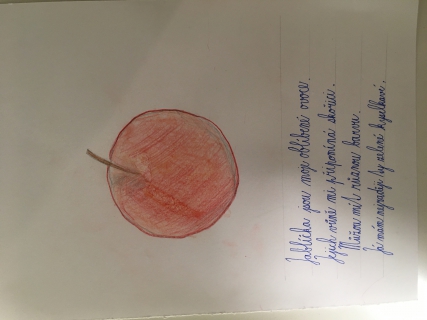 Jablíčka jsou moje oblíbené ovoce.
Jejich vůně mi připomíná skořici.
Můžou mít různou barvu.
Já mám nejraději ty zelené kyselkavé.